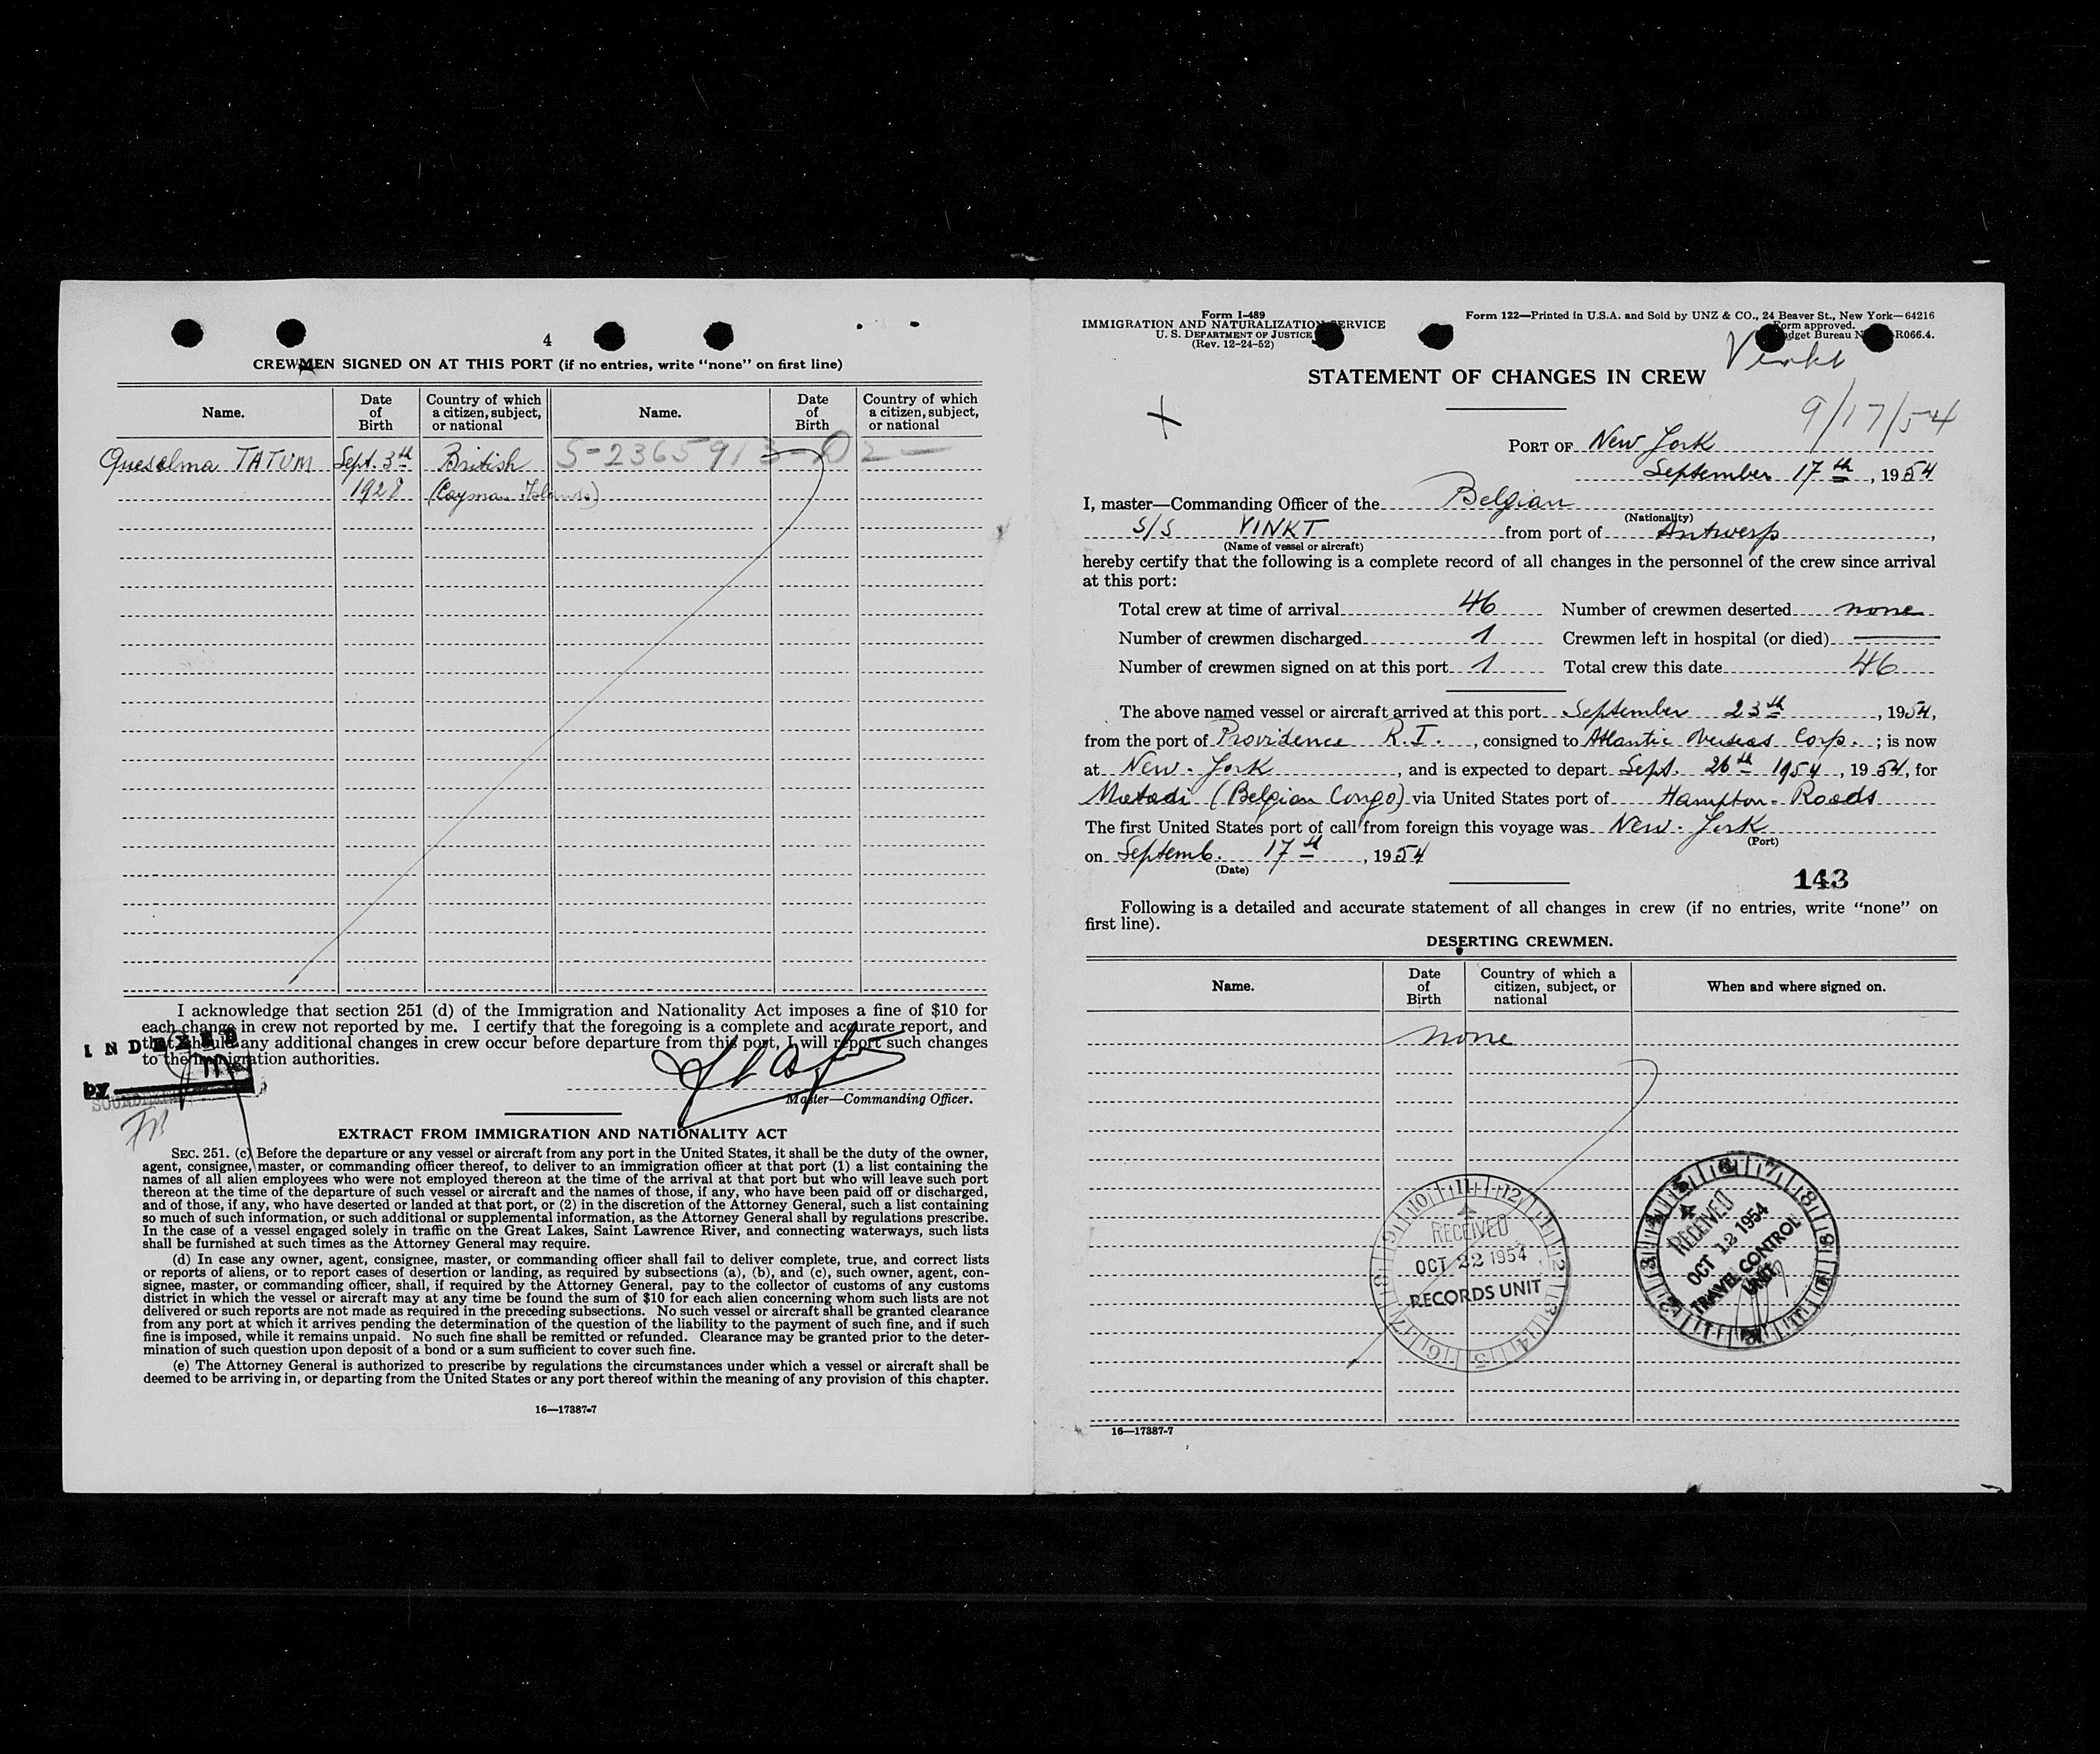 4
CREWMEN SIGNED ON AT THIS PORT (if no entries, write "none" on first line)
Name. Date of Birth Country of which a citizen, subject, or national Name. Date of Birth Country of which a citizen, subject, or national
Queselma TATUM Sept. 3th British S-2365913
1928 (Cayman Islands)
I acknowledge that section 251 (d) of the Immigration and Nationality Act imposes a fine of $10 for
each change in crew not reported by me. I certify that the foregoing is a complete and accurate report, and
that, should any additional changes in crew occur before departure from this port, I will report such changes
to the immigration authorities.
INDEXED
by
Master—Commanding Officer.
EXTRACT FROM IMMIGRATION AND NATIONALITY ACT
SEC. 251. (c) Before the departure or any vessel or aircraft from any port in the United States, it shall be the duty of the owner,
agent, consignee, master, or commanding officer thereof, to deliver to an immigration officer at that port (1) a list containing the
names of all alien employees who were not employed thereon at the time of the arrival at that port but who will leave such port
thereon at the time of the departure of such vessel or aircraft and the names of those, if any, who have been paid off or discharged,
and of those, if any, who have deserted or landed at that port, or (2) in the discretion of the Attorney General, such a list containing
so much of such information, or such additional or supplemental information, as the Attorney General shall by regulations prescribe.
In the case of a vessel engaged solely in traffic on the Great Lakes, Saint Lawrence River, and connecting waterways, such lists
shall be furnished at such times as the Attorney General may require.
(d) In case any owner, agent, consignee, master, or commanding officer shall fail to deliver complete, true, and correct lists
or reports of aliens, or to report cases of desertion or landing, as required by subsections (a), (b), and (c), such owner, agent, con-
signee, master, or commanding officer, shall, if required by the Attorney General, pay to the collector of customs of any customs
district in which the vessel or aircraft may at any time be found the sum of $10 for each alien concerning whom such lists are not
delivered or such reports are not made as required in the preceding subsections. No such vessel or aircraft shall be granted clearance
from any port at which it arrives pending the determination of the question of the liability to the payment of such fine, and if such
fine is imposed, while it remains unpaid. No such fine shall be remitted or refunded. Clearance may be granted prior to the deter-
mination of such question upon deposit of a bond or a sum sufficient to cover such fine.
(e) The Attorney General is authorized to prescribe by regulations the circumstances under which a vessel or aircraft shall be
deemed to be arriving in, or departing from the United States or any port thereof within the meaning of any provision of this chapter.
16—17387-7
Form I-489
IMMIGRATION AND NATURALIZATION SERVICE
U. S. DEPARTMENT OF JUSTICE
(Rev. 12-24-52)
Form 122—Printed in U.S.A. and Sold by UNZ & CO., 24 Beaver St., New York—64216
Form approved.
Budget Bureau R066.4.
Vinkt
STATEMENT OF CHANGES IN CREW
9/17/54
PORT OF New York
September 17th, 1954
I, master—Commanding Officer of the Belgian
(Nationality)
S/S VINKT from port of Antwerp,
(Name of vessel or aircraft)
hereby certify that the following is a complete record of all changes in the personnel of the crew since arrival
at this port:
Total crew at time of arrival 46 Number of crewmen deserted none
Number of crewmen discharged 1 Crewmen left in hospital (or died) —
Number of crewmen signed on at this port 1 Total crew this date 46
The above named vessel or aircraft arrived at this port September 23th, 1954,
from the port of Providence R.I., consigned to Atlantic Overseas Corp.; is now
at New-York, and is expected to depart Sept. 26th 1954, 1954, for
Matadi (Belgian Congo) via United States port of Hampton-Roads
The first United States port of call from foreign this voyage was New-York
(Port)
on Septemb. 17th, 1954
(Date)
143
Following is a detailed and accurate statement of all changes in crew (if no entries, write "none" on
first line).
DESERTING CREWMEN.
Name. Date of Birth Country of which a citizen, subject, or national When and where signed on.
none
RECEIVED
OCT 22 1954
RECORDS UNIT
RECEIVED
OCT 12 1954
TRAVEL CONTROL
UNIT
16—17387-7